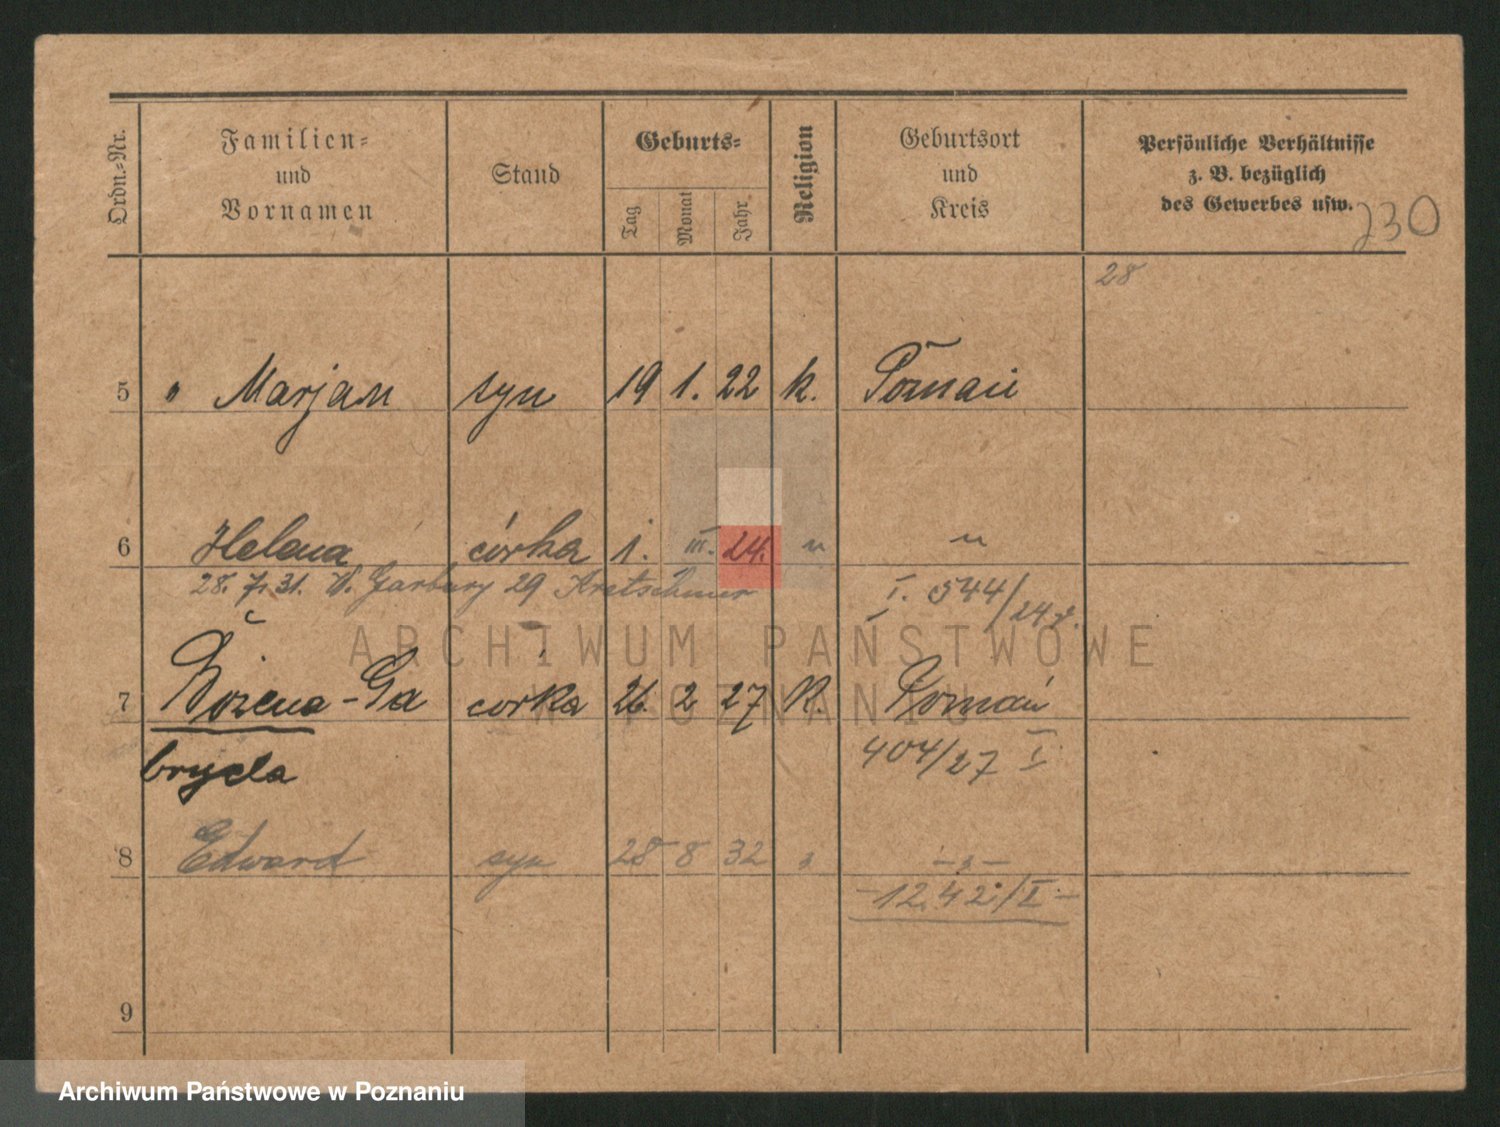 Ordn.-Nr.
Familien-
und
Vornamen
Stand
Geburts-
Tag
Monat
Jahr
Religion
Geburtsort
und
Kreis
Persönliche Verhältnisse
z. B. bezüglich
des Gewerbes usw.
230
28
5 " Marjan syn 19 1. 22 k. Poznań
6 Helena córka 1. III. 24. " "
28. 7. 31. W. Garbary 29 Kretschmer I. 544/24
7 Bożena-Ga córka 26. 2 27 K. Poznań
bryela 404/27 I
8 Edward syn 28 8 32 " - " -
- 1242/I -
9
ARCHIWUM PAŃSTWOWE
W POZNANIU
Archiwum Państwowe w Poznaniu